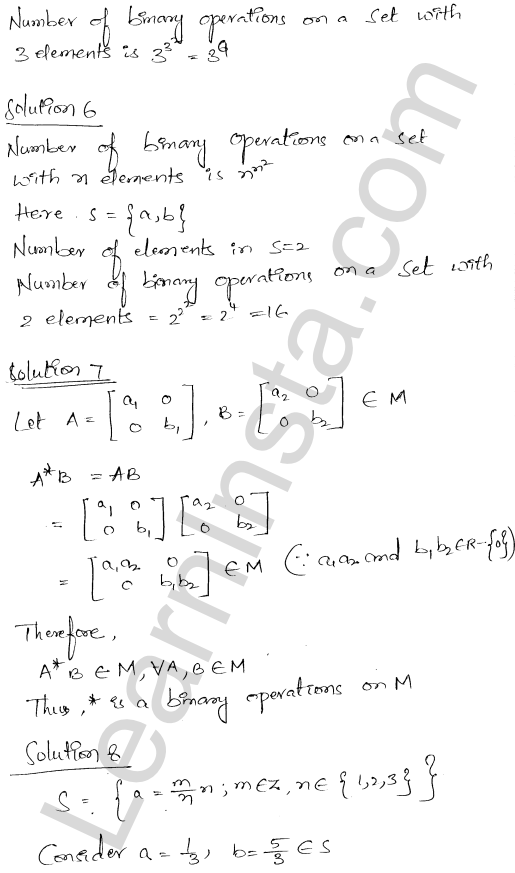 Number of binary operations on a set with
3 elements is 3^3^2 = 3^9
Solution 6
Number of binary operations on a set
with n elements is n^n^2
Here S = {a, b}
Number of elements in S=2
Number of binary operations on a set with
2 elements = 2^2^2 = 2^4 = 16
Solution 7
Let A = [a1 0; 0 b1], B = [a2 0; 0 b2] ∈ M
A*B = AB
= [a1 0; 0 b1] [a2 0; 0 b2]
= [a1a2 0; 0 b1b2] ∈ M (∵ a1a2 and b1b2 ∈ R-{0})
Therefore,
A*B ∈ M, ∀A, B ∈ M
Thus, * is a binary operations on M
Solution 8
S = {a = m/n n; m∈Z, n∈ {1,2,3}}
Consider a = 1/3, b = 5/3 ∈ S
LearnInsta.com